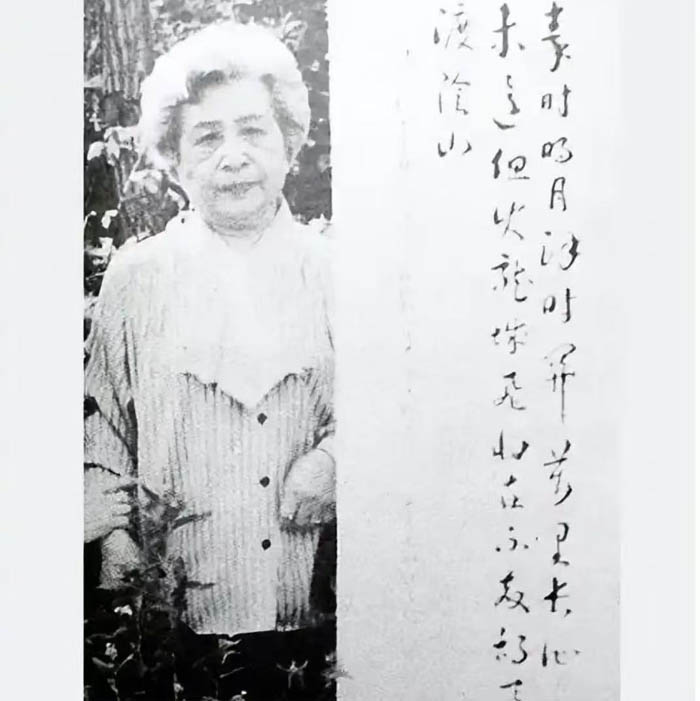 秦时明月汉时关万里长征
未还但使龙城飞将在不教胡马
渡陰山